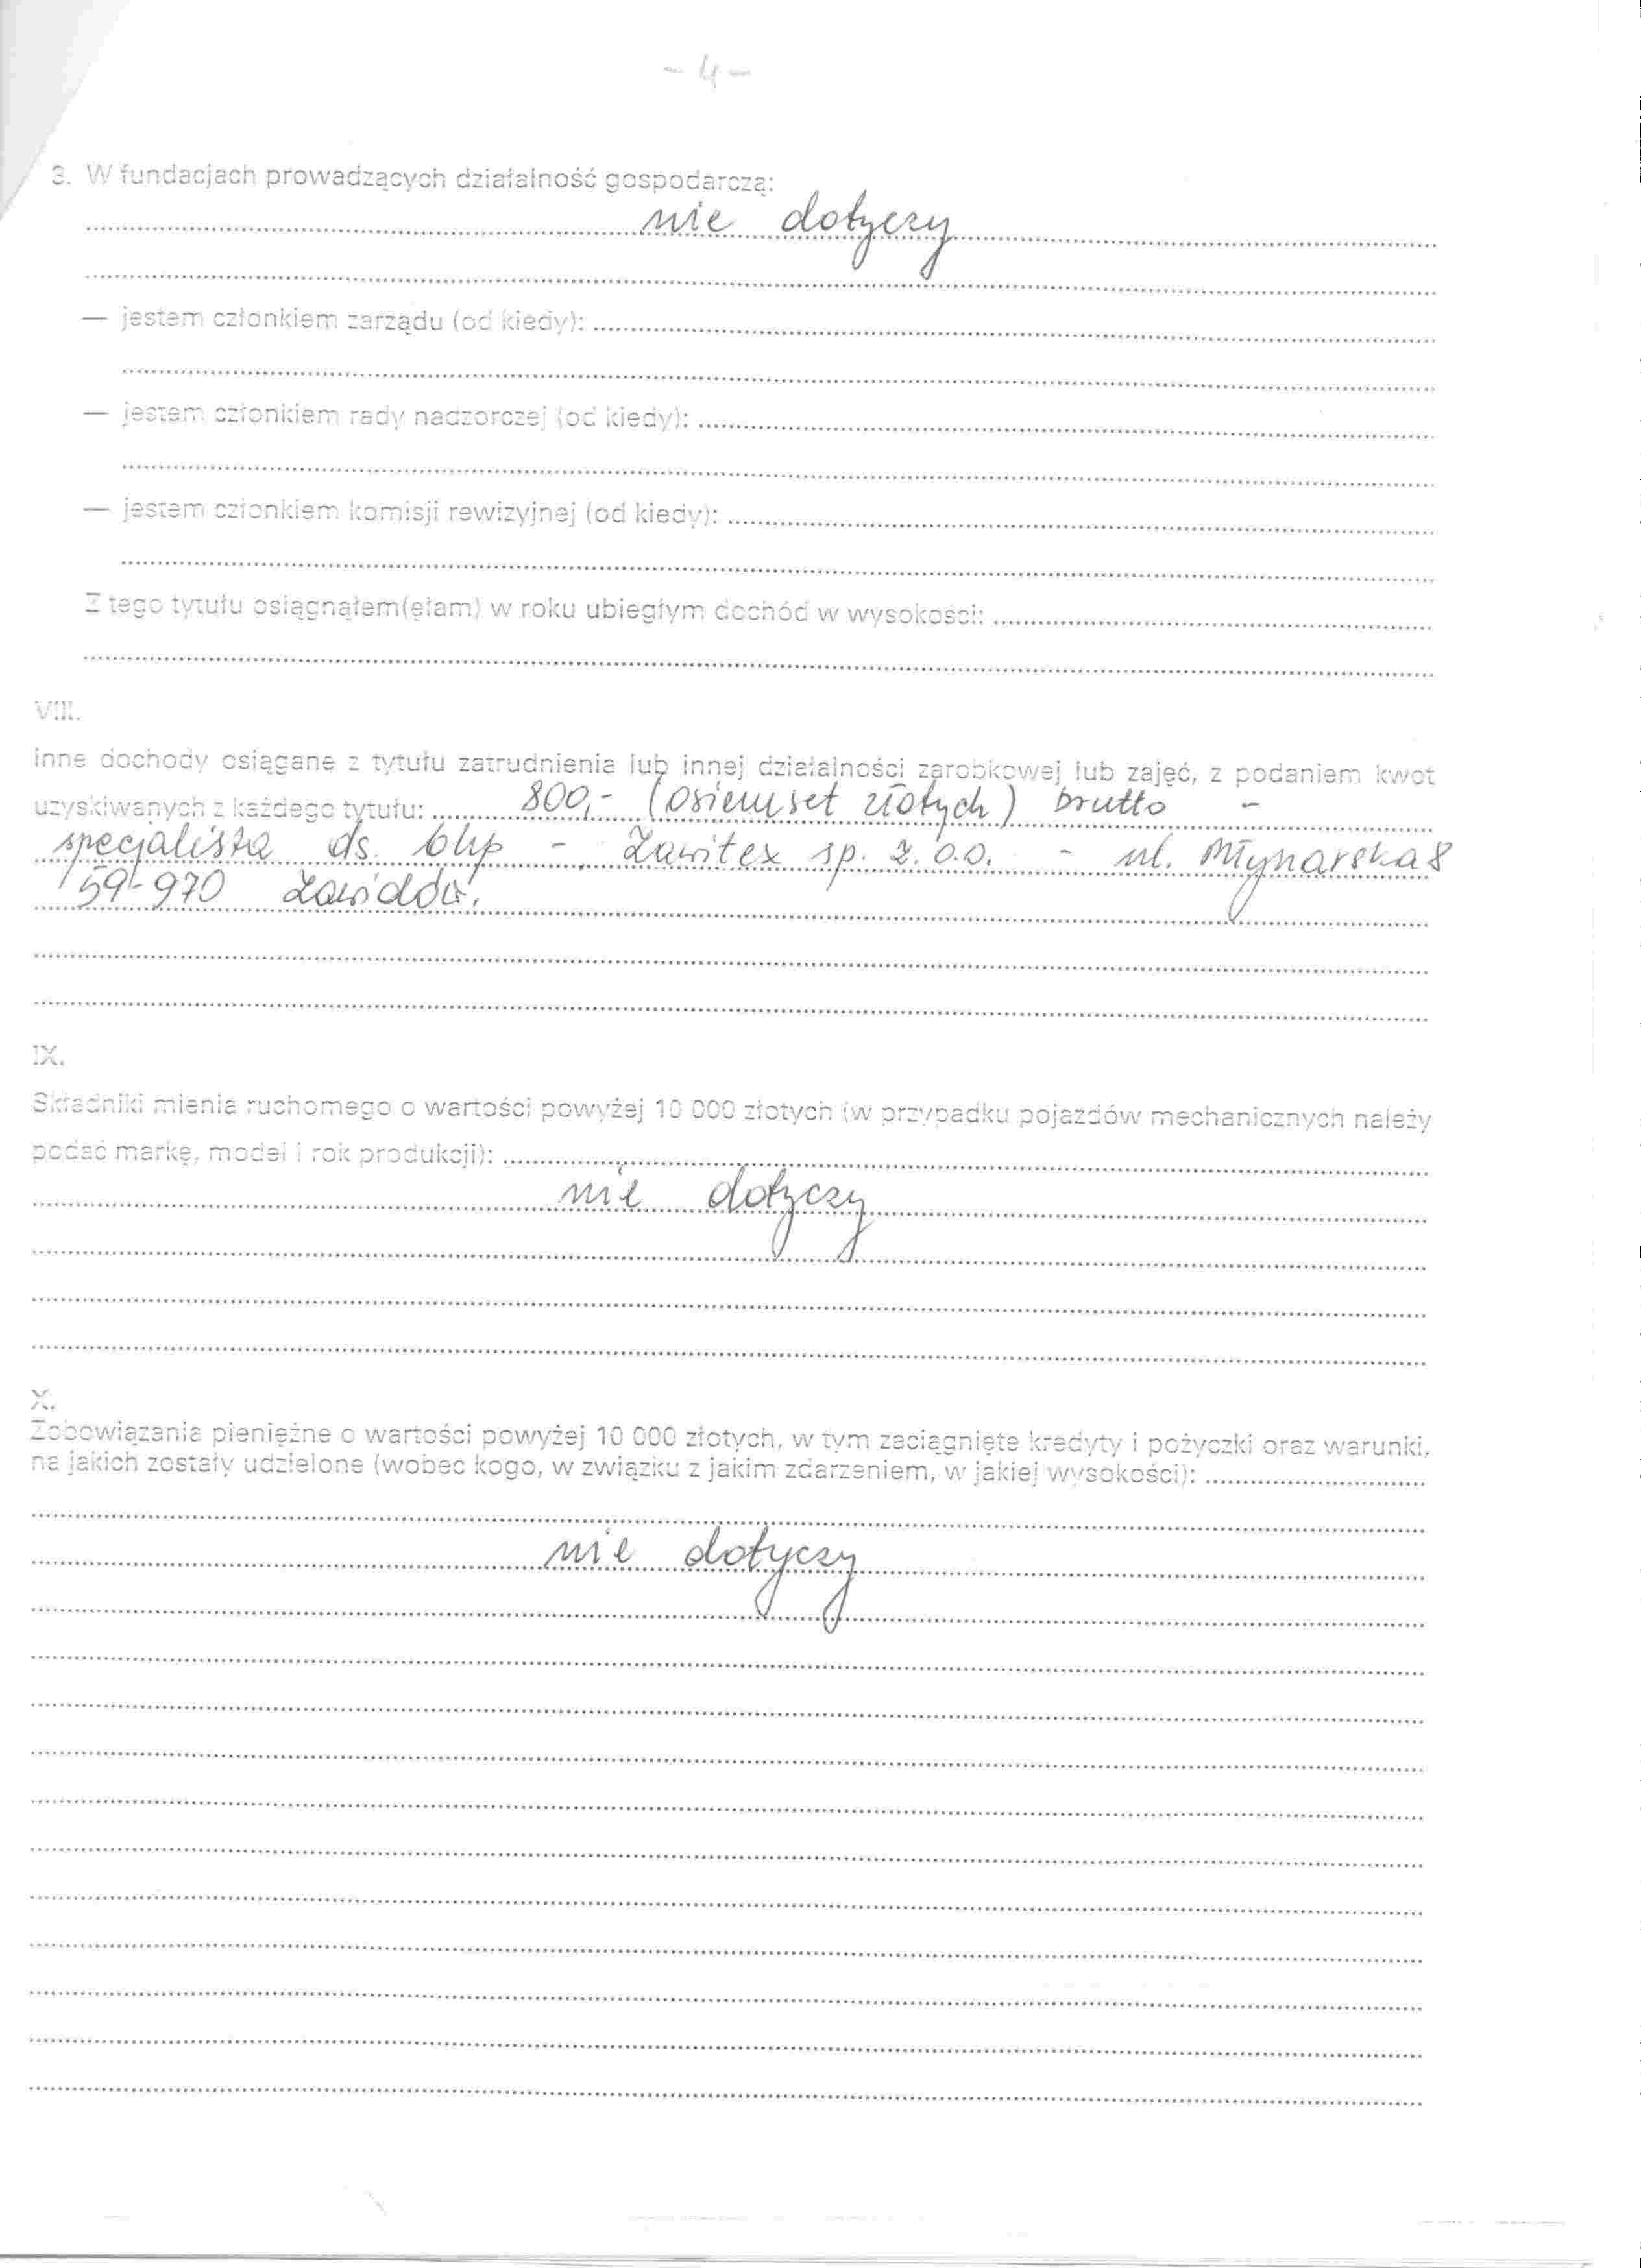 - 4 -
3. W fundacjach prowadzących działalność gospodarczą:
nie dotyczy
— jestem członkiem zarządu (od kiedy):
— jestem członkiem rady nadzorczej (od kiedy):
— jestem członkiem komisji rewizyjnej (od kiedy):
Z tego tytułu osiągnąłem(ęłam) w roku ubiegłym dochód w wysokości:
VIII.
Inne dochody osiągane z tytułu zatrudnienia lub innej działalności zarobkowej lub zajęć, z podaniem kwot
uzyskiwanych z każdego tytułu: 800,- (osiemset złotych) brutto -
specjalista ds. bhp - Zawitex sp. z. o.o. - ul. Młynarska 8
59-970 Zawidów.
IX.
Składniki mienia ruchomego o wartości powyżej 10 000 złotych (w przypadku pojazdów mechanicznych należy
podać markę, model i rok produkcji):
nie dotyczy
X.
Zobowiązania pieniężne o wartości powyżej 10 000 złotych, w tym zaciągnięte kredyty i pożyczki oraz warunki,
na jakich zostały udzielone (wobec kogo, w związku z jakim zdarzeniem, w jakiej wysokości):
nie dotyczy